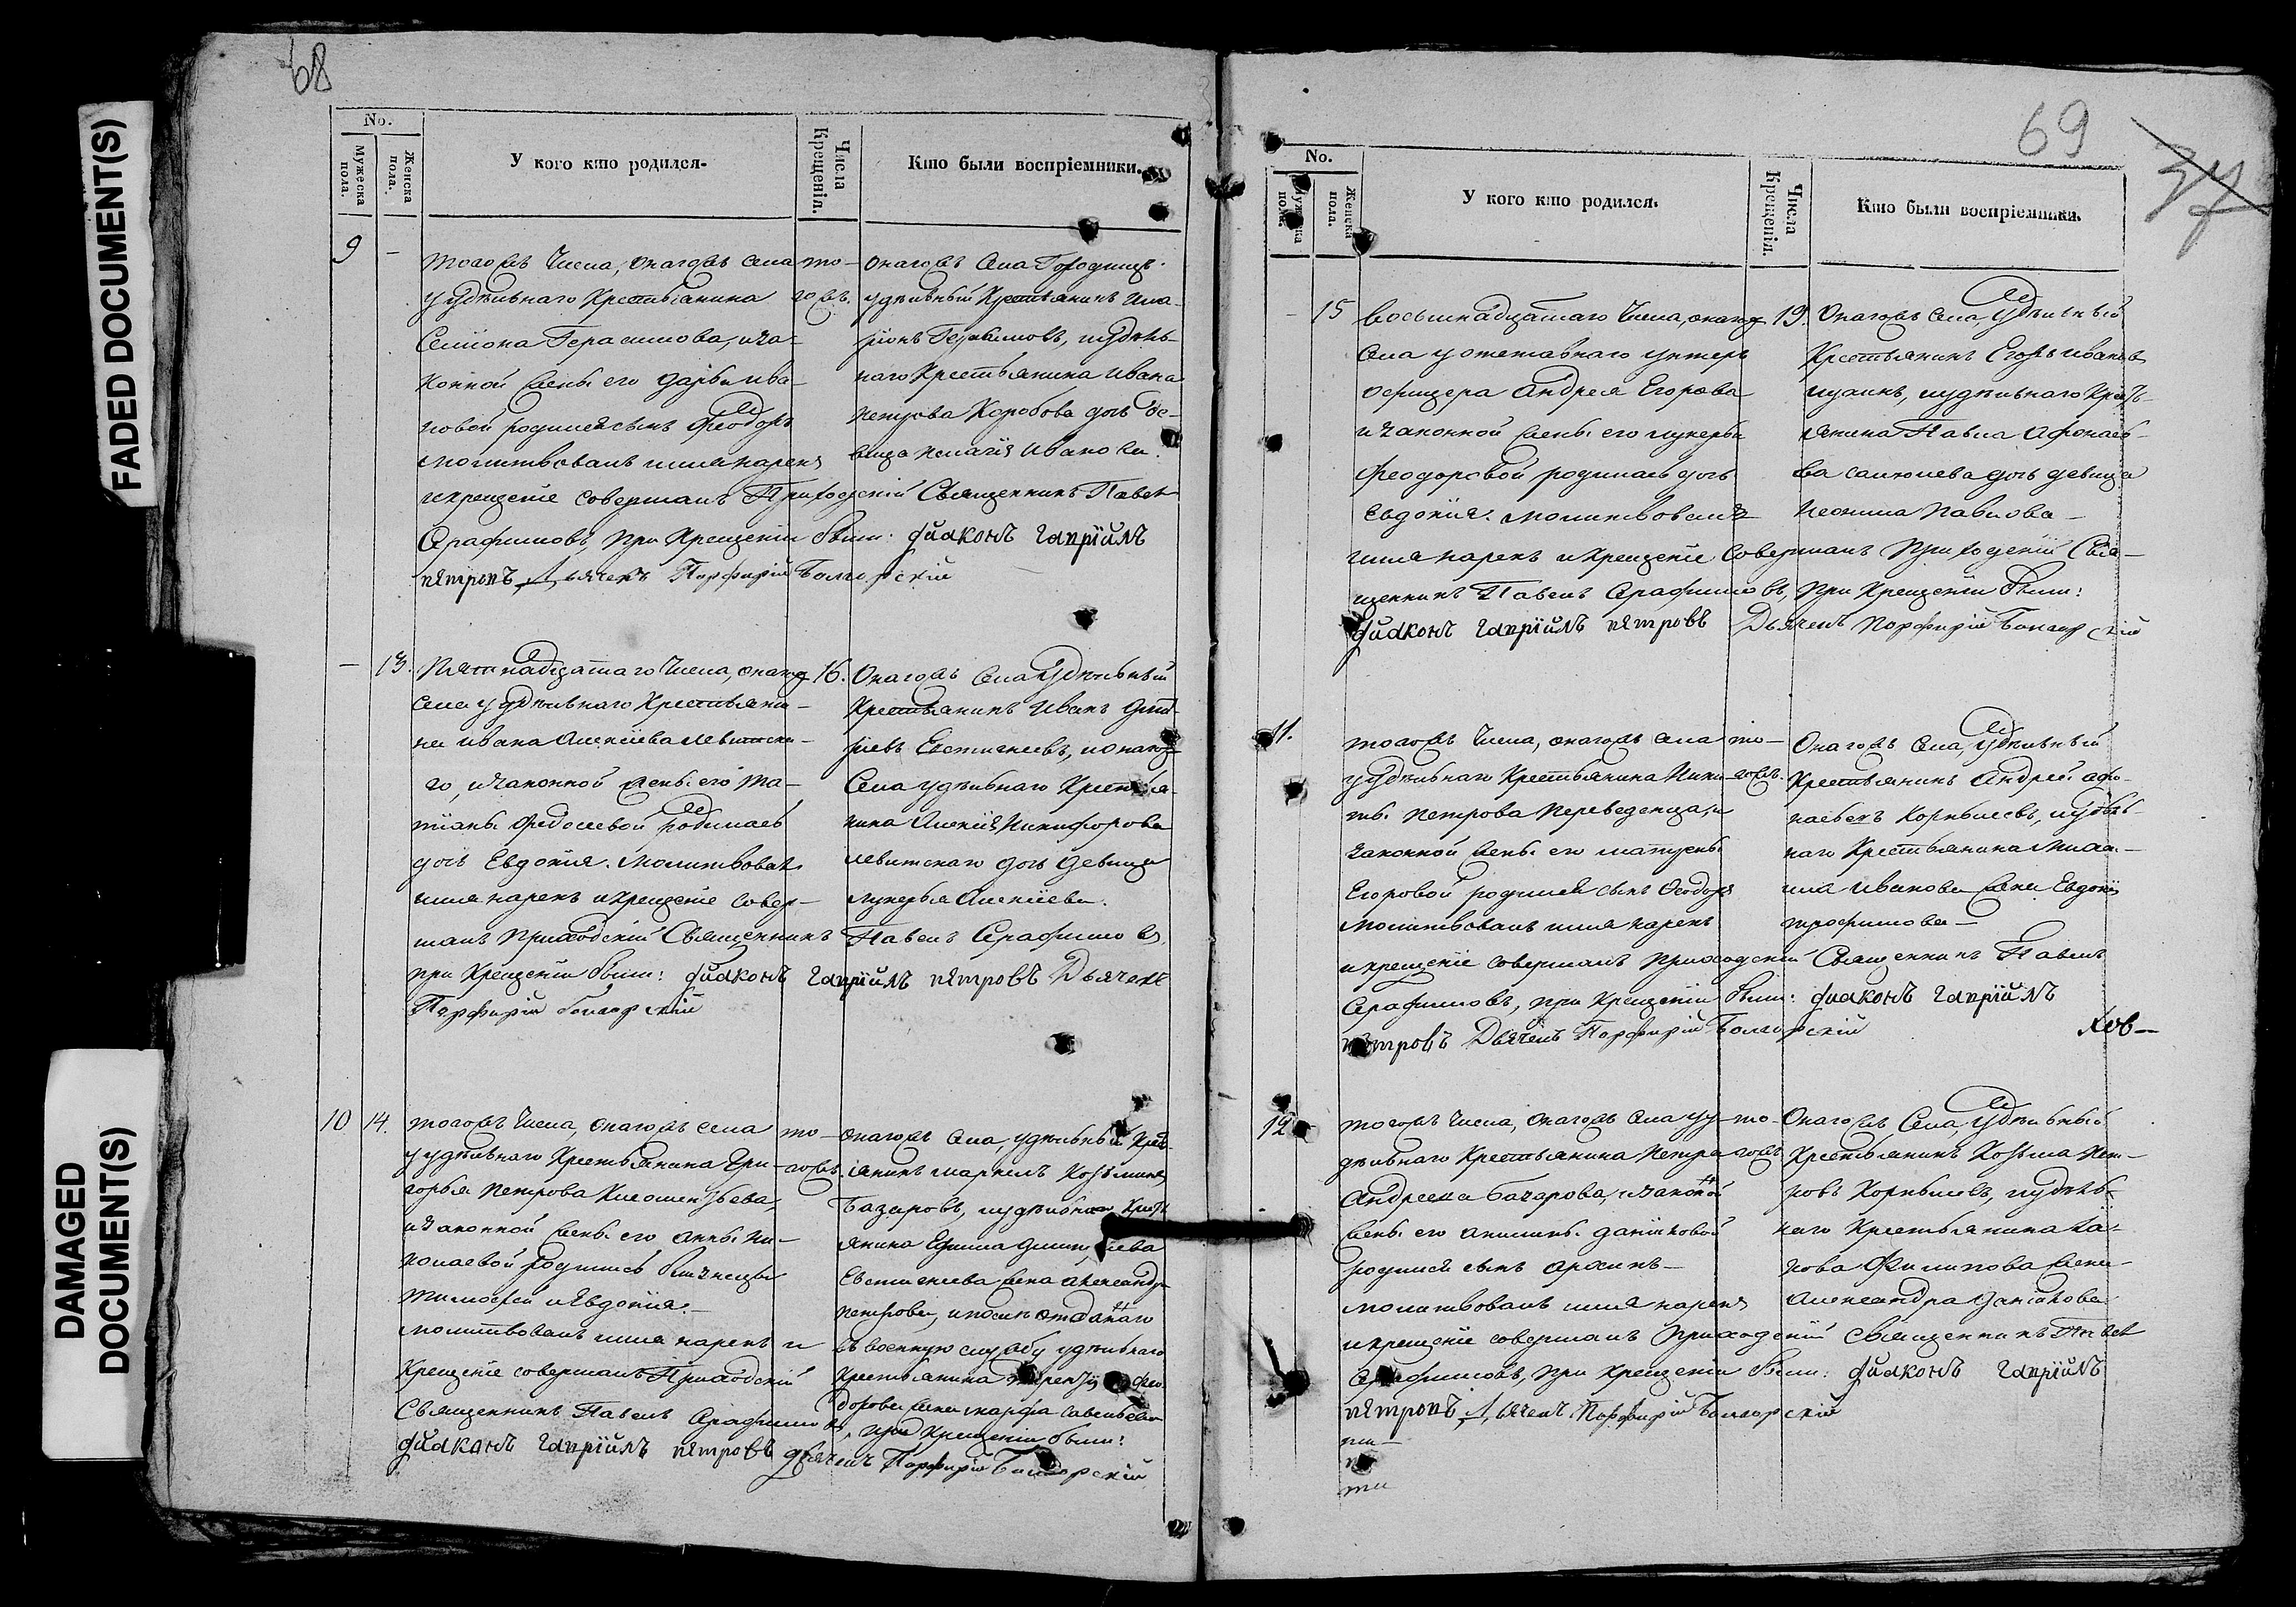 FADED DOCUMENT(S)
DAMAGED
DOCUMENT(S)
68
No.
Мужеска пола.
Женска пола.
У кого кто родился.
Числа Крещенія.
Кто были воспріемники.
9 —
тогожъ Числа, онагожъ села
у удѣльнаго Крестьянина
Семіона Герасимова, и за-
конной жены его Дарьи Ива-
новой родился сынъ Феодоръ
молитвовалъ имя нарекъ
и крещеніе совершалъ Приходскій Священникъ Павелъ
Серафимовъ, при Крещеніи были: диаконъ гавріилъ
петровъ Дьячекъ Порфирій
то-
гожъ.
онагожъ села
удѣльный Крестьянинъ Ила-
ріонъ Герасимовъ, и удѣль-
наго Крестьянина Ивана
петрова Коробова дочь де-
вица Пелагія Иванова.
— 13.
Пятнадцатаго Числа, онагожъ
села у удѣльнаго Крестьяни-
на Ивана Алексіева Левитска-
го, и законной жены его Та-
тіаны Федосеевой родилась
дочь Евдокія. Молитвовалъ
имя нарекъ и крещеніе совер-
шалъ приходскій Священникъ Павелъ Серафимовъ,
при Крещеніи были: диаконъ гавріилъ петровъ Дьячекъ
Порфирій
16.
Онагожъ села Удѣльный
Крестьянинъ Иванъ Дмит-
ріевъ Евстигнеевъ, и онагожъ
Села удѣльнаго Крестья-
нина Алексія Никифорова
Левитскаго дочь девица
лукерья Алексіева.
10 14.
тогожъ Числа, онагожъ села
у удѣльнаго Крестьянина Гри-
горья Петрова
и законной жены его Анны Ни-
колаевой родились близнецы
Тимофей и Евдокія.
молитвовалъ имя нарекъ и
Крещеніе совершалъ Приходскій
Священникъ Павелъ Серафимовъ, при Крещеніи были:
диаконъ гавріилъ петровъ дьячекъ Порфирій
то-
гожъ.
онагожъ села, удѣльный Крес-
ьянинъ маркелъ Козьминъ
Базаровъ, и удѣльнаго Кресть
янина Ефима Дмитріева
Евстигнеева жена Александра
петрова, и послѣ отданаго
въ военную службу удѣльнаго
Крестьянина Терентія Фео-
дорова жена марфа савельева
69
37
No.
Мужеска пола.
Женска пола.
У кого кто родился.
Числа Крещенія.
Кто были воспріемники.
— 15
Восьмнадцатаго Числа, онагожъ
села у отставнаго унтеръ
офицера Андрея Егорова
и законной жены его лукерьи
Феодоровой родилась дочь
Евдокія. молитвовалъ
имя нарекъ и крещеніе совершалъ приходскій Свя-
щенникъ Павелъ Серафимовъ, при Крещеніи были:
диаконъ гавріилъ петровъ Дьячекъ Порфирій
19.
Онагожъ села, Удѣльный
Крестьянинъ Егоръ Ивановъ
и удѣльнаго Кресть-
янина Павла Афонась-
ва дочь девица
Неонила Павлова
11.
тогожъ Числа, онагожъ села
у удѣльнаго Крестьянина Ники-
ты Петрова Переведенца, и
законной жены его матрены
Егоровой родился сынъ Феодоръ
молитвовалъ имя нарекъ
и крещеніе совершалъ приходскій Священникъ Павелъ
Серафимовъ, при Крещеніи были: диаконъ гавріилъ
петровъ Дьячекъ Порфирій
то-
гожъ.
Онагожъ села, Удѣльный
Крестьянинъ Андрей Афо-
насьевъ Корнѣевъ, и удѣль-
наго Крестьянина Миха-
ила Иванова жена Евдокія
трофимова
12 —
тогожъ Числа, онагожъ села у у-
дѣльнаго Крестьянина Петра
Андреева Базарова, и законной
жены его акилины даниловой
родился сынъ
молитвовалъ имя нарекъ
и крещеніе совершалъ приходскій Священникъ Павелъ
Серафимовъ, при Крещеніи были: диаконъ гавріилъ
петровъ Дьячекъ Порфирій
то-
гожъ
Онагожъ Села, Удѣльный
Крестьянинъ Козьма
Корнѣевъ, и удѣль-
наго Крестьянина Іа-
кова Филипова жена
Александра